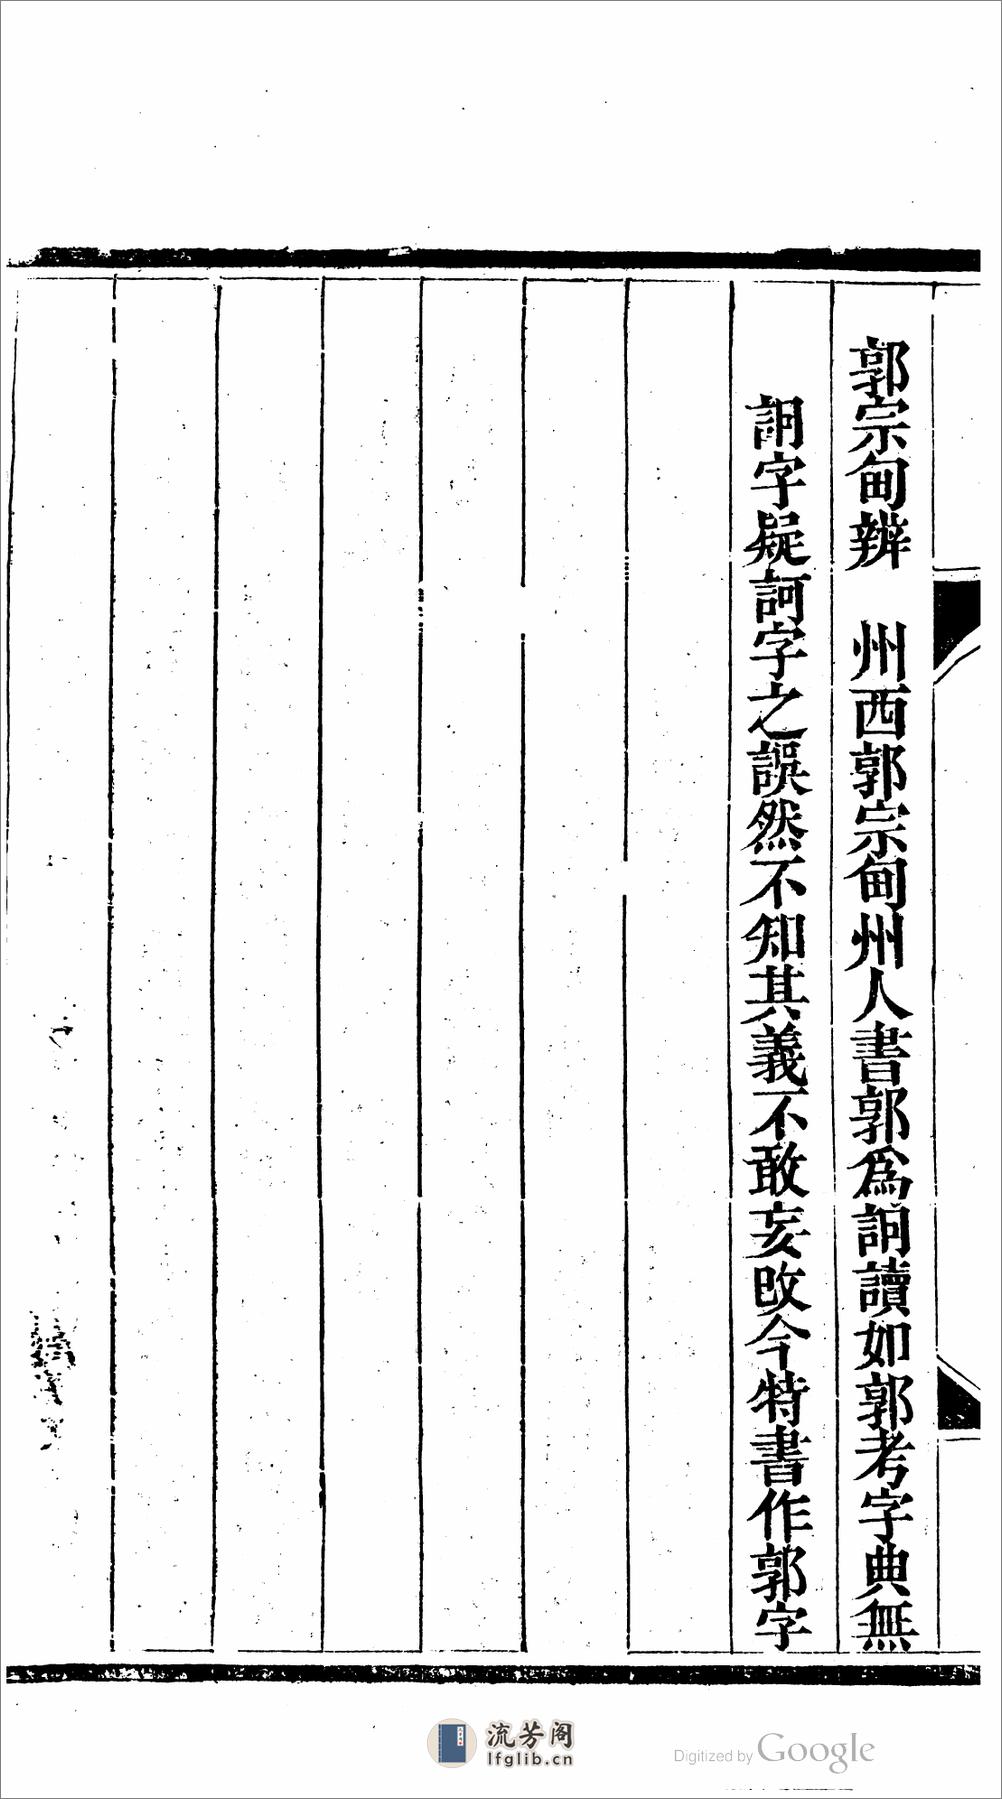 郭宗甸辨　州西郭宗甸州人書郭爲詗讀如郭考字典無
詗字疑訶字之誤然不知其義不敢妄改今特書作郭字
流芳阁
lfglib.cn
Digitized by Google